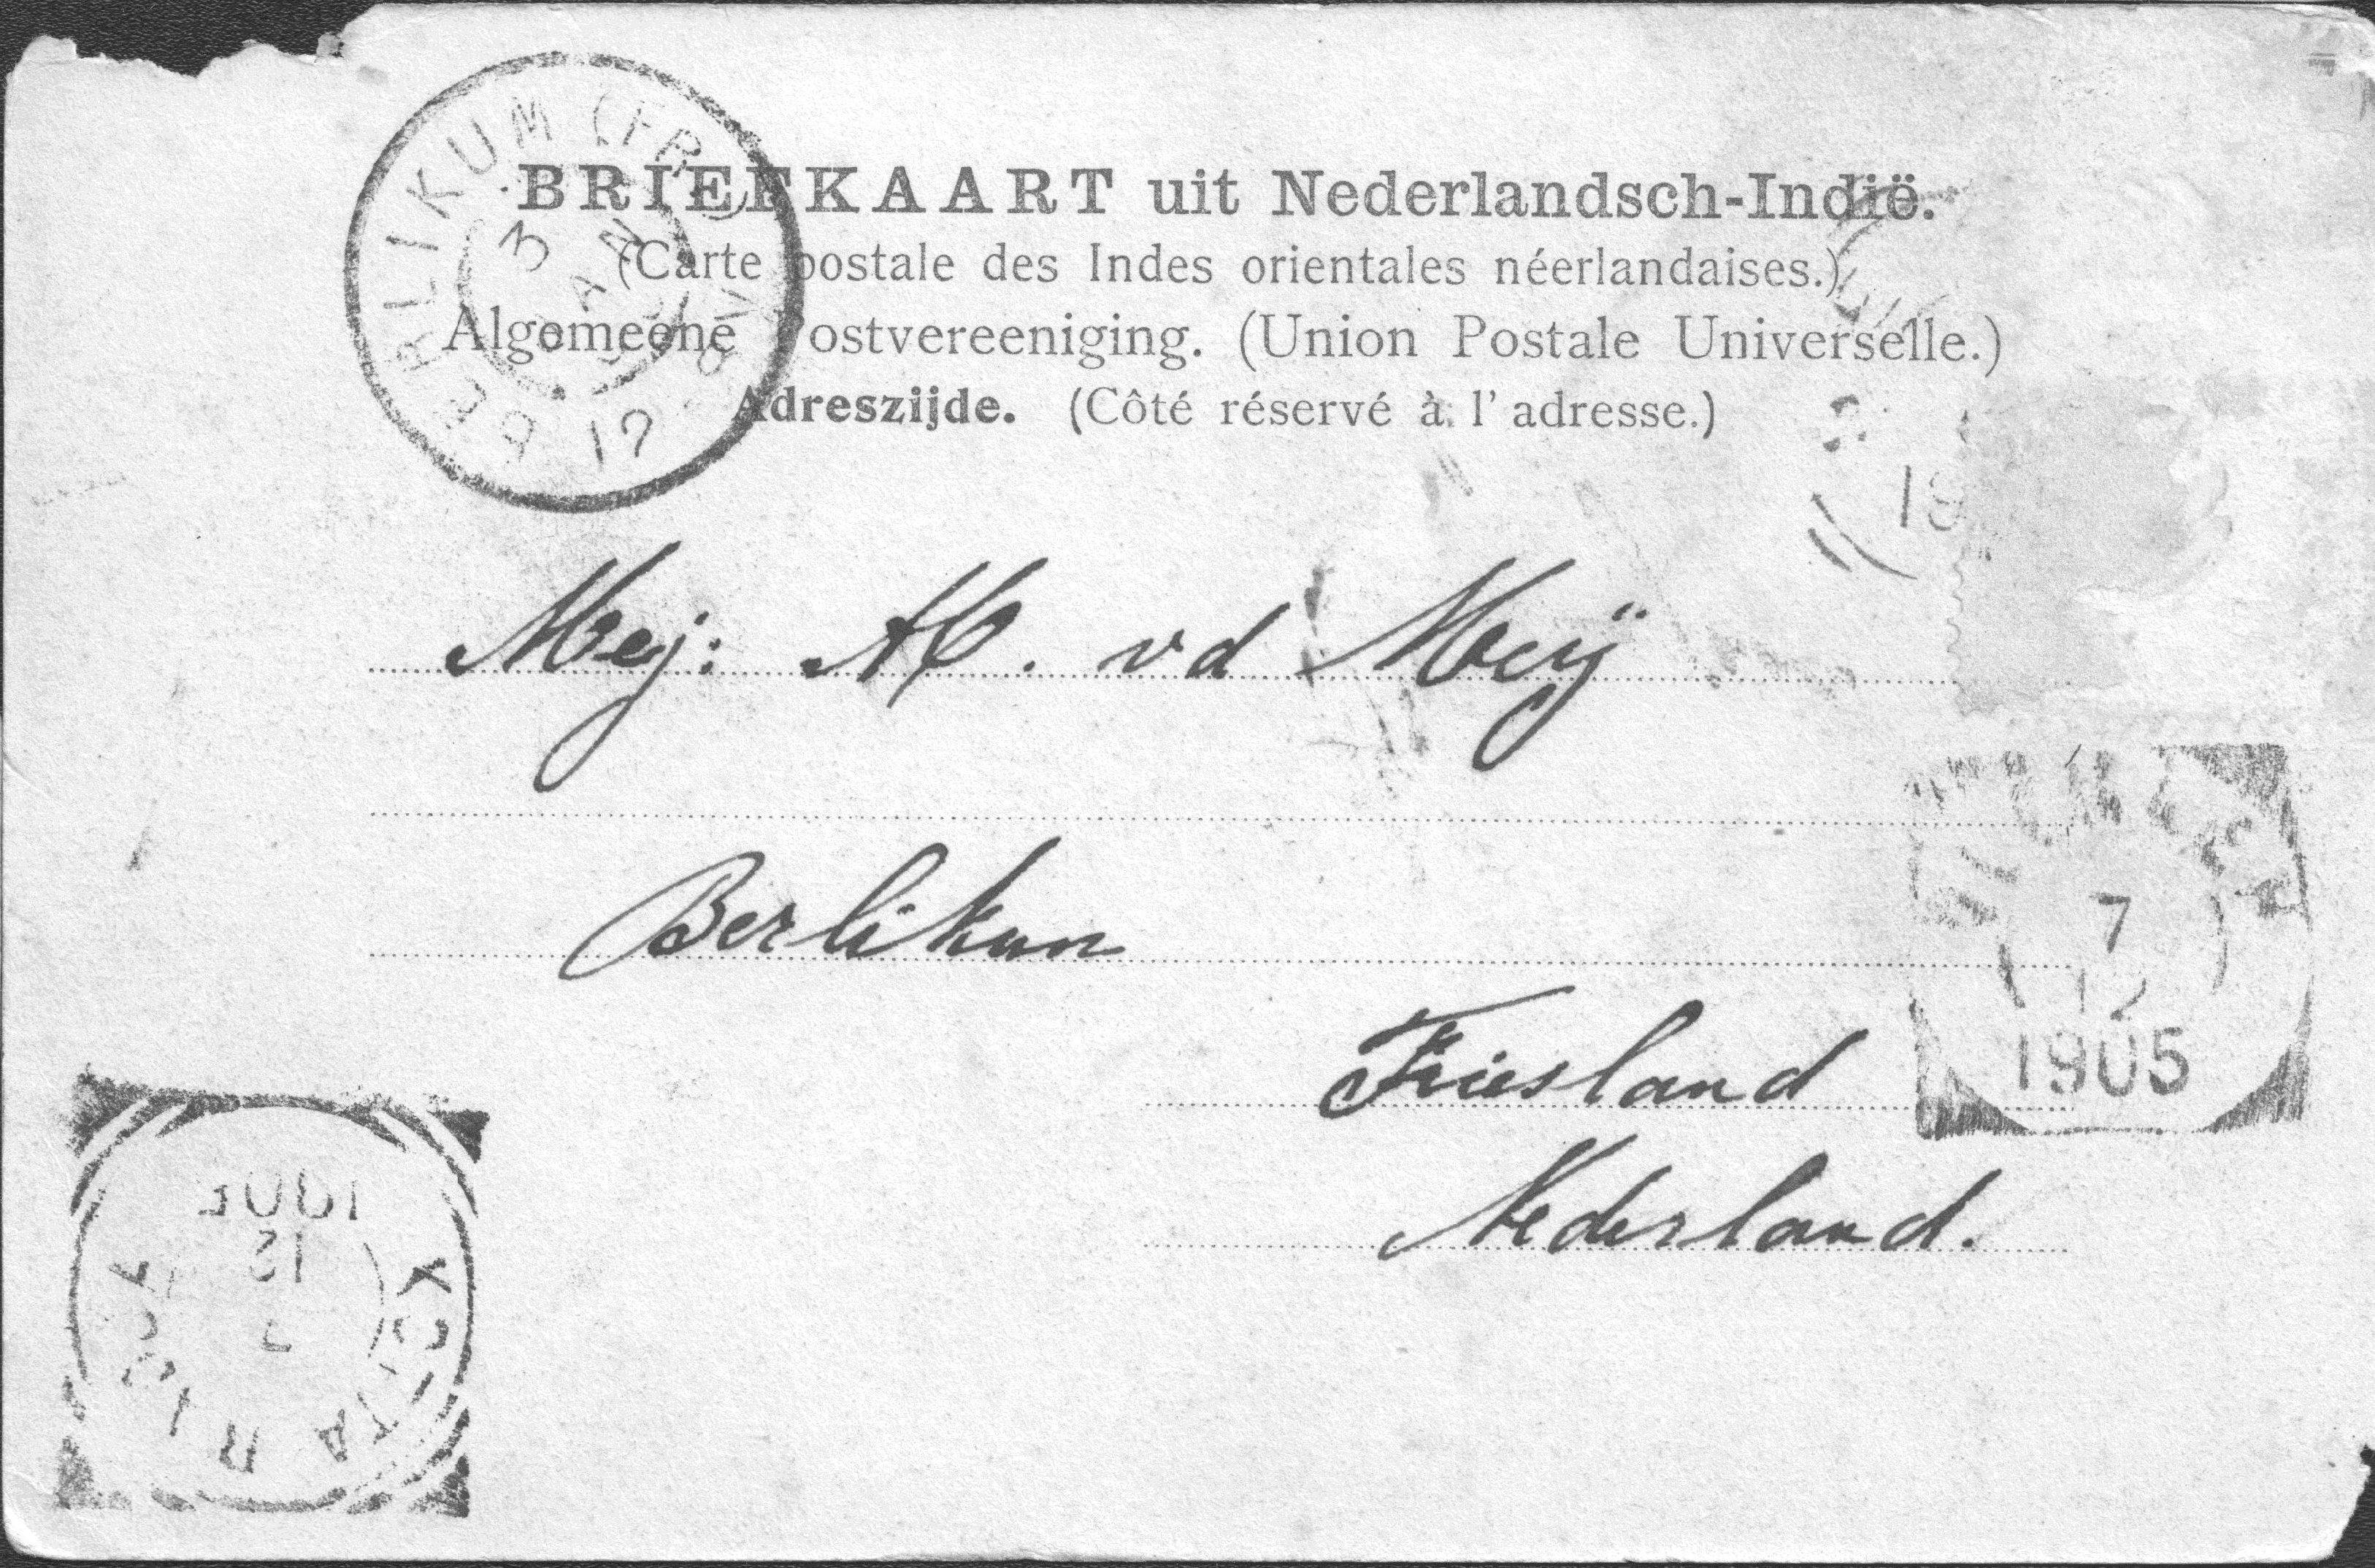 BRIEFKAART uit Nederlandsch-Indië.
(Carte postale des Indes orientales néerlandaises.)
Algemeene Postvereeniging. (Union Postale Universelle.)
Adreszijde. (Côté réservé à l'adresse.)
BERLIKUM (FR
3
JAN
19
Mej: A. vd Meij
Berlikum
7
12
1905
Friesland
Nederland.
12
7